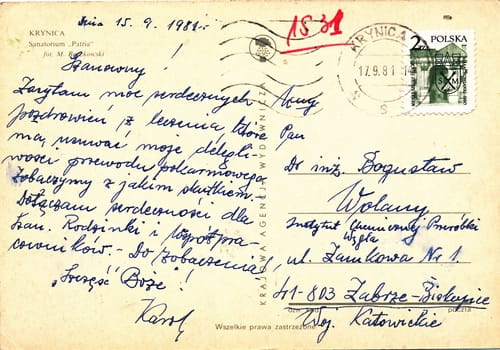 KRYNICA
Sanatorium „Patria"
fot. M.
Dnia 15. 9. 1981.
Szanowny
Zasyłam moc serdecznych
pozdrowień z leczenia, które
ma, usunąć moje dolegli-
wości przewodu pokarmowego
Zobaczymy z jakim skutkiem.
Dołączam serdeczności dla
Szan. Rodzinki i Współpra
cowników. - Do zobaczenia
„Szczęść Boże"!
Karol
KRAJOWA AGENCJA WYDAWNICZA
Wszelkie prawa zastrzeżone
1531
KRYNICA
17.9.81
POLSKA
Pan
Dr inż. Bogusław
Wolany
Instytut Chemicznej Przeróbki
Węgla
ul. Zamkowa Nr 1
41-803 Zabrze-Biskupice
poczta
Woj. Katowickie